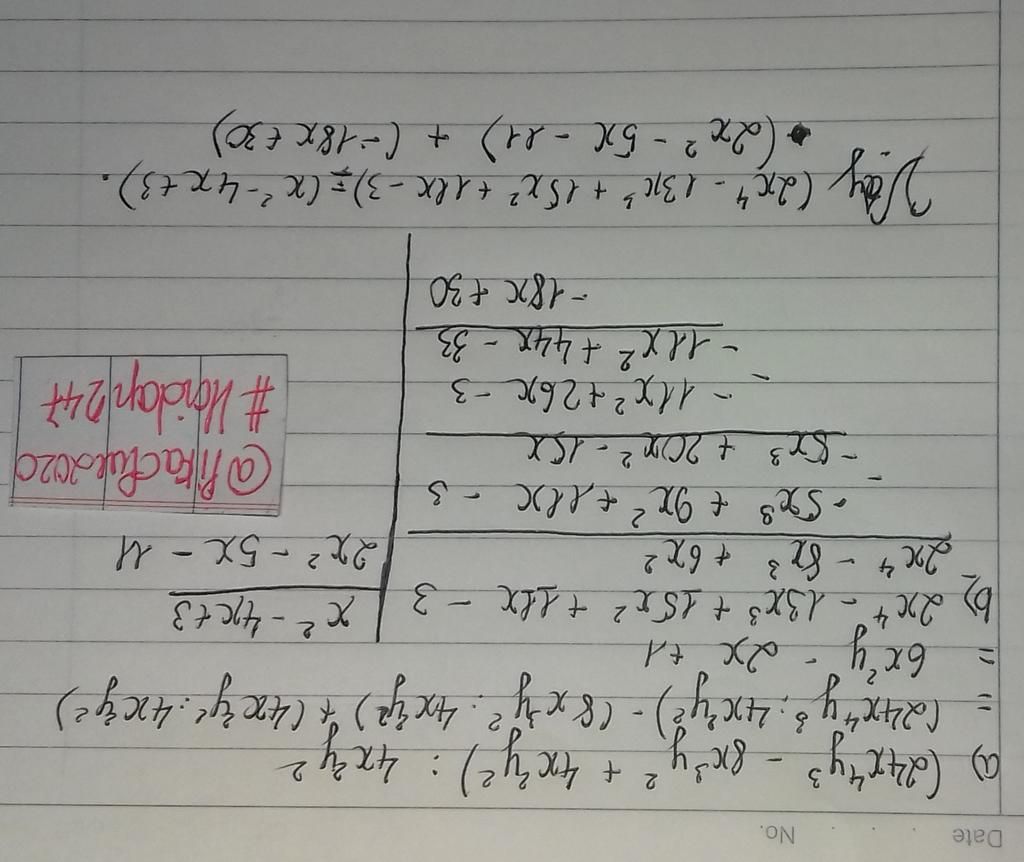 No. Date
a) (24x⁴y³ - 8x³y² + 4x²y²) : 4x²y²
= (24x⁴y³ : 4x²y²) - (8x³y² : 4x²y²) + (4x²y² : 4x²y²)
= 6x²y - 2x + 1
b) 2x⁴ - 13x³ + 15x² + 11x - 3 | x² - 4x + 3
2x⁴ - 8x³ + 6x² | 2x² - 5x - 11
-5x³ + 9x² + 11x - 3
-5x³ + 20x² - 15x
-11x² + 26x - 3
-11x² + 44x - 33
-18x + 30
#Hoidap247
Vậy (2x⁴ - 13x³ + 15x² + 11x - 3) = (x² - 4x + 3).
(2x² - 5x - 11) + (-18x + 30)